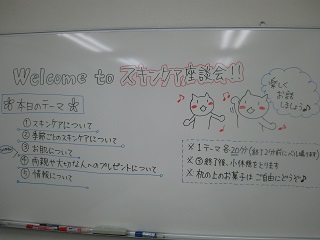 Welcome to スキンケア座談会!!
楽しく
お話
しましょう♪
本日のテーマ
① スキンケアについて
② 季節ごとのスキンケアについて
③ お肌について
④ 両親や大切な人へのプレゼントについて
⑤ 情報について
※ 1テーマ 各20分(終了2分前にベル鳴ります)
※ ③終了後、小休憩をとります
※ 机の上のお菓子はご自由にどうぞ♪